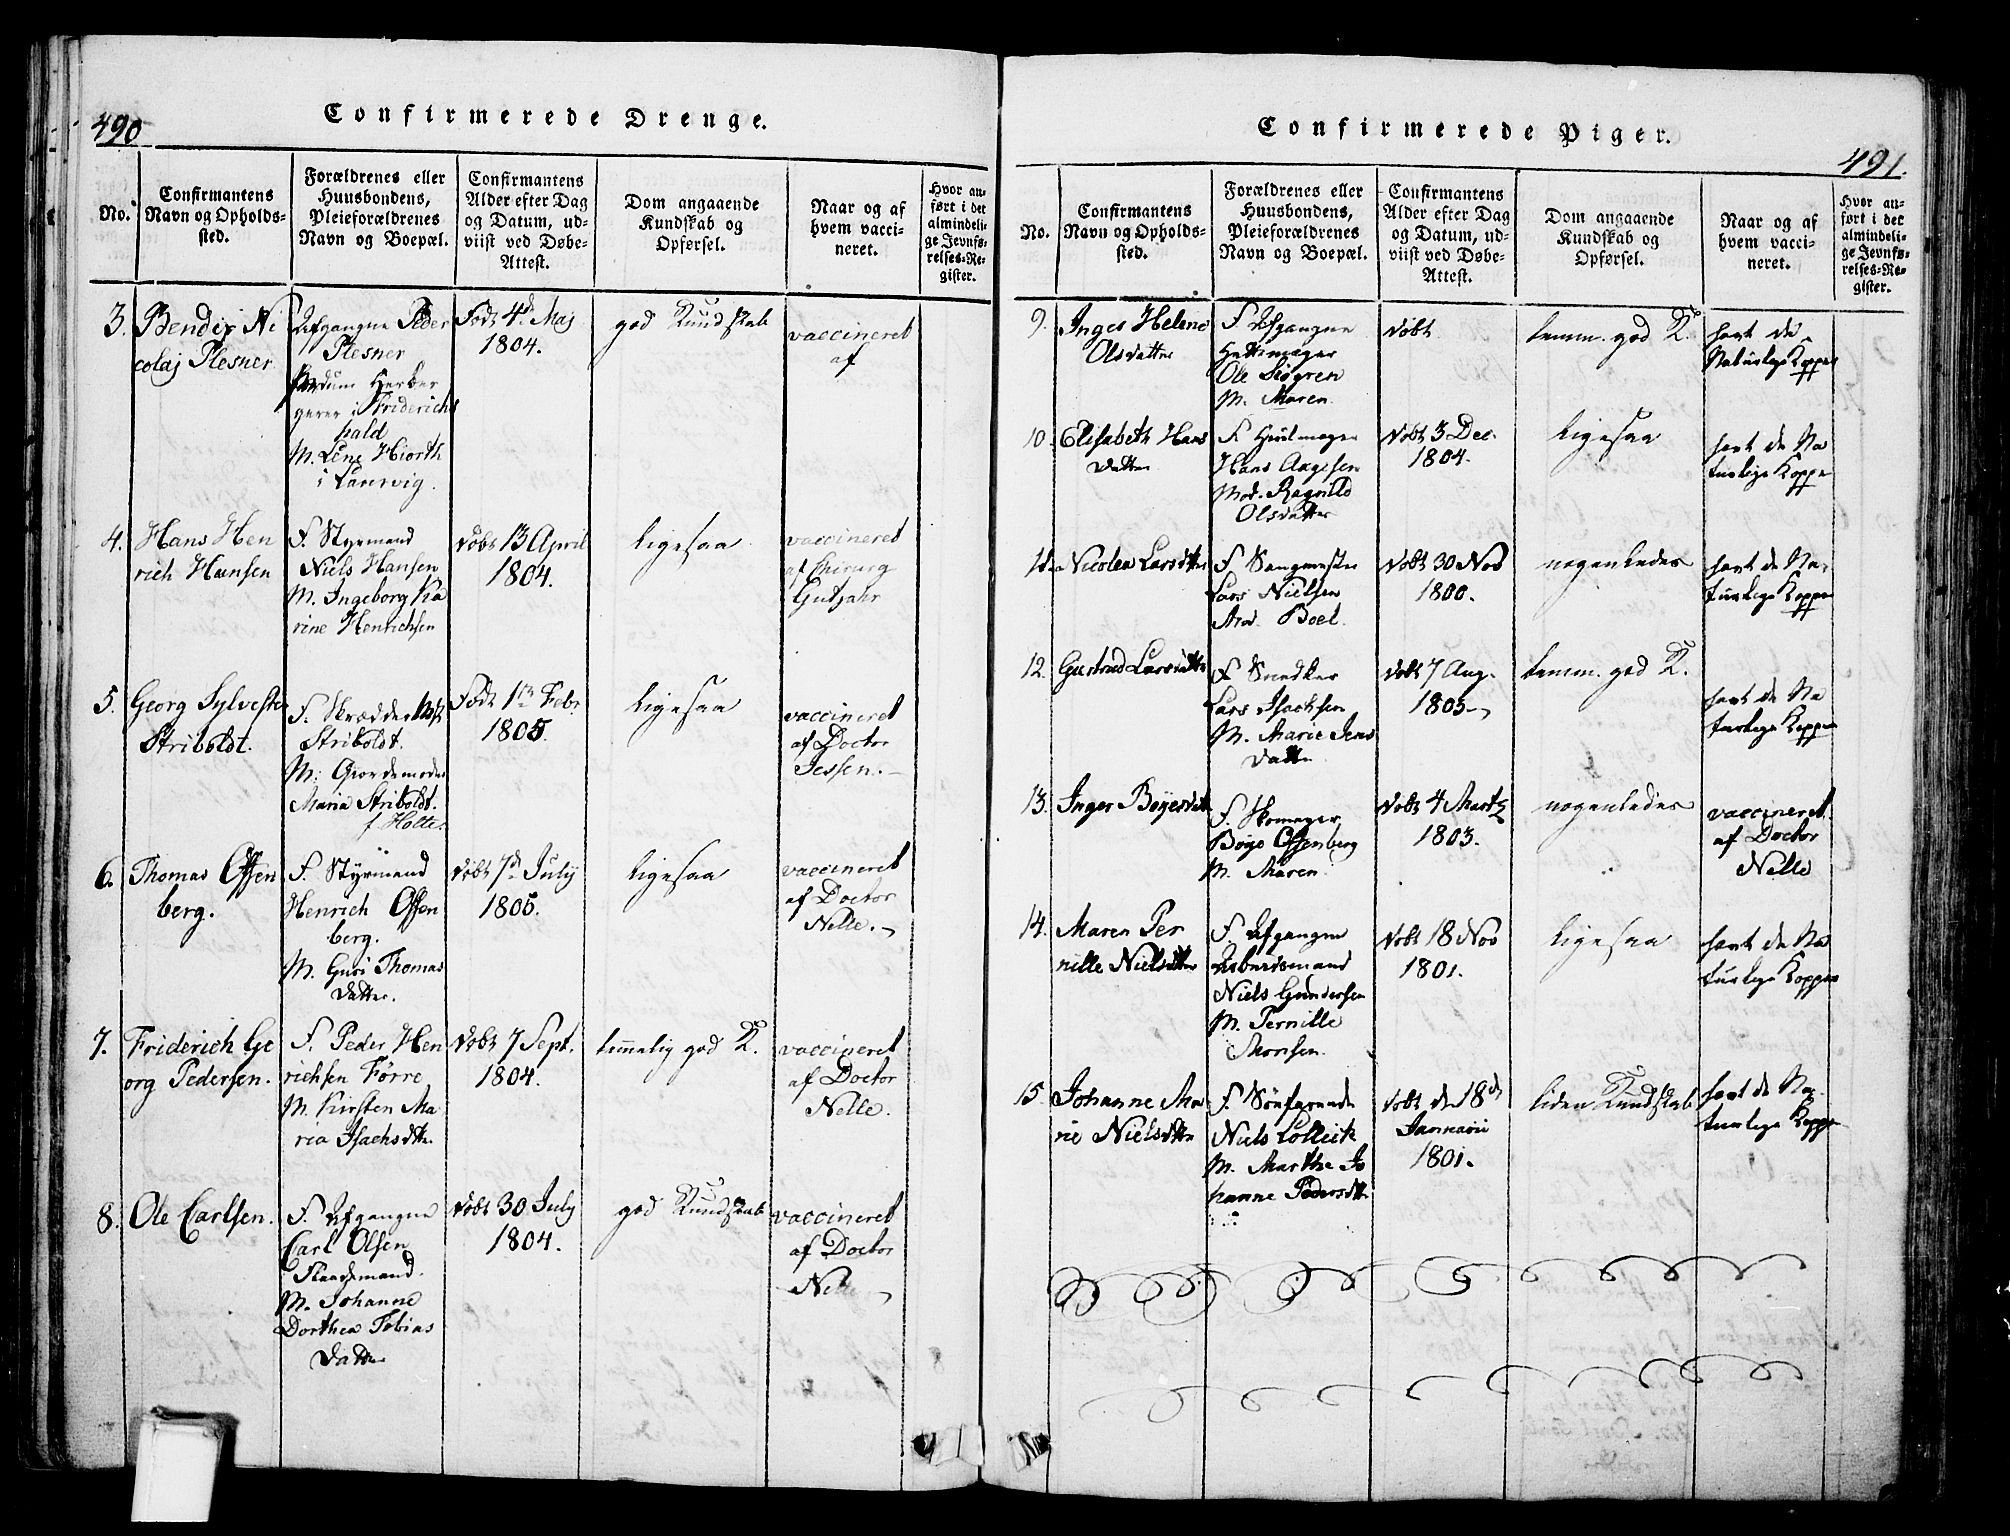 490
Confirmerede Drenge.
No.
Confirmantens
Navn og Opholds-
sted.
Forældrenes eller
Huusbondens,
Pleieforældrenes
Navn og Boepæl.
Confirmantens
Alder efter Dag
og Datum, ud-
viist ved Døbe-
Attest.
Dom angaaende
Kundskab og
Opførsel.
Naar og af
hvem vacci-
neret.
Hvor an-
ført i det
almindeli-
ge Jevnfø-
relses-Re-
gister.
3.
Bendix Ni
colaj Plesner
Afgangne Peder
Plesner
Herber
gerer i Friderichs
hald
M. Lene Hiorth
i Laurvig.
Født 4de Maj
1804.
god Kundskab
vaccineret
af
4.
Hans Hen
rich Hansen
F. Styrmand
Niels Hansen
M. Ingeborg Ka
rine Henrichsen
døbt 13 April
1804.
ligesaa
vaccineret
af Chirurg
Gutjahr
5.
Georg Sylvester
Striboldt.
F. Skrædder
Striboldt.
M. Giordemoder
Maria Striboldt.
f. Holter
Født 1ste Febr.
1805.
ligesaa
vaccineret
af Doctor
Jessen.
6.
Thomas Offen
berg.
F. Styrmand
Henrich Offen
berg.
M. Guri Thomas
datter.
døbt 7de July
1805.
ligesaa
vaccineret
af Doctor
Nelle.
7.
Friderich Ge
org Pedersen.
F. Peder Hen
richsen Førre
M. Kirsten Ma
ria Isachsdtr.
døbt 7 Sept.
1804.
temmelig god K.
vaccineret
af Doctor
Nelle.
8.
Ole Carlsen.
F. Afgangne
Carl Olsen
M. Johanne
Dorthea Tobias
datter
døbt 30 July
1804.
god Kundskab
vaccineret
af Doctor
Nelle
491.
Confirmerede Piger.
No.
Confirmantens
Navn og Opholds-
sted.
Forældrenes eller
Huusbondens,
Pleieforældrenes
Navn og Boepæl.
Confirmantens
Alder efter Dag
og Datum, ud-
viist ved Døbe-
Attest.
Dom angaaende
Kundskab og
Opførsel.
Naar og af
hvem vacci-
neret.
Hvor an-
ført i det
almindeli-
ge Jevnfø-
relses-Re-
gister.
9.
Inger Helene
Olsdatter
F. Afgangne
Hattemager
Ole Siøgren
M. Maren.
døbt
temm. god K.
havt de
Naturlige Kopper
10.
Elisabeth Hans
datter
F. Hiulmager
Hans Aagesen
Mod. Ragnild
Olsdatter
døbt 3 Dec.
1804.
ligesaa
havt de Na
turlige Kopper
11.
Nicolea Larsdtr
F. Saugmester
Lars Nielsen
Mod. Boel.
døbt 30 Nov
1800.
nogenledes
havt de Na-
turlige Kopper
12.
Gustred Larsdatter
F. Snedker
Lars Isachsen
M. Marie Jens
datter
døbt 7 Aug.
1803.
temm. god K.
havt de Na
turlige Kopper
13.
Inger Bøyesdatter
F. Skomager
Bøye Offenberg
M. Maren.
døbt 4 Martz
1803.
nogenledes
vaccineret.
af Doctor
Nelle
14.
Maren Per
nille Nielsdtr
F. Afgangne
Arbeidsmand
Niels Gundersen
M. Pernille
døbt 18 Nov
1801.
ligesaa
havt de Na
turlige Kopper
15.
Johanne Ma
rie Nielsdtr
F. Søefarende
Niels
M. Marthe Jo
hanne Pedersdtr
døbt de 18de
Januarii
1801.
liden Kundskab
havt de Na-
turlige Kopper